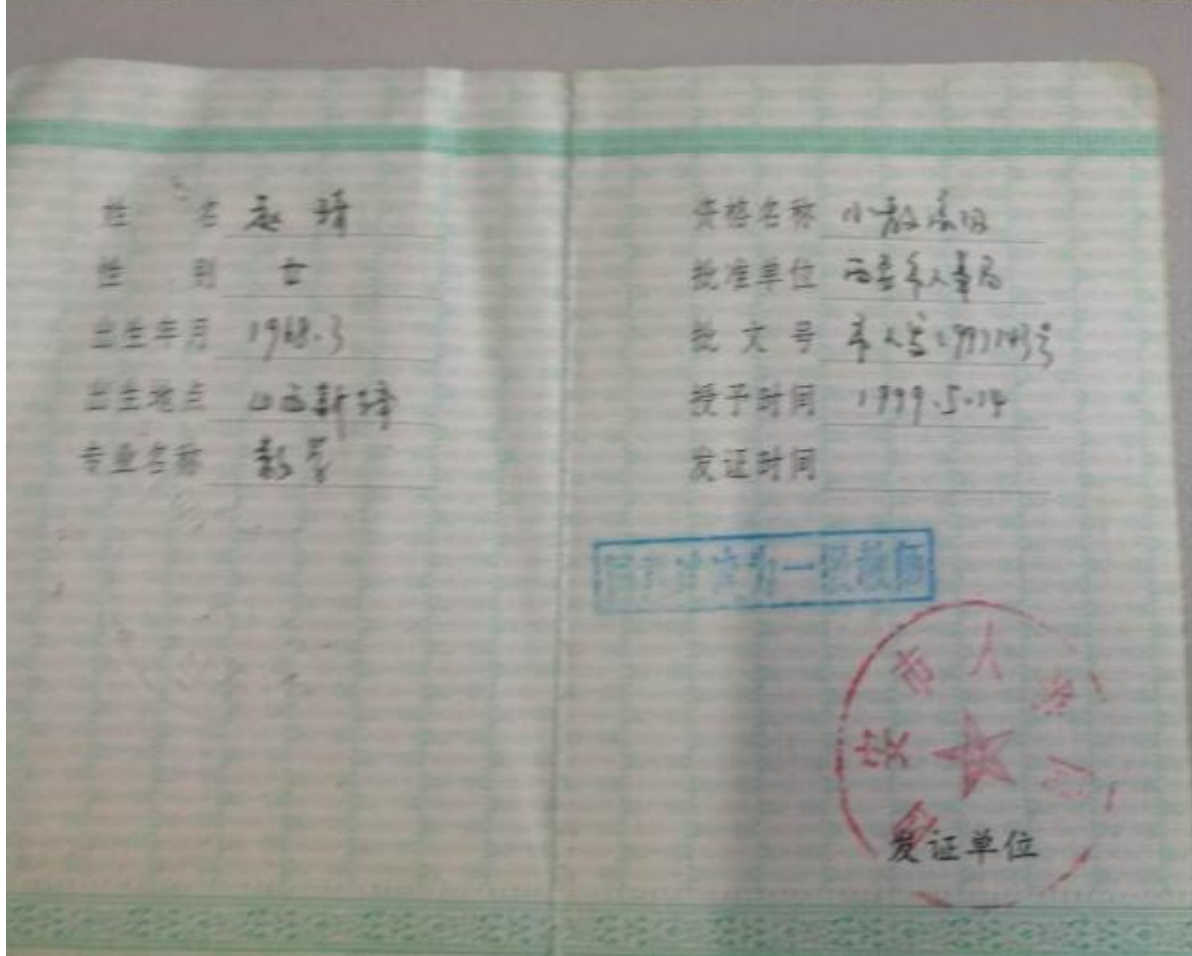 姓 名 赵 琦
性 别 女
出生年月 1968.3
出生地点 山西新绛
专业名称 数学
资格名称 小教高级
批准单位 西安市人事局
批文号 市人发
授予时间 1999.5.14
发证时间
为一级教师
西安市人事局
发证单位